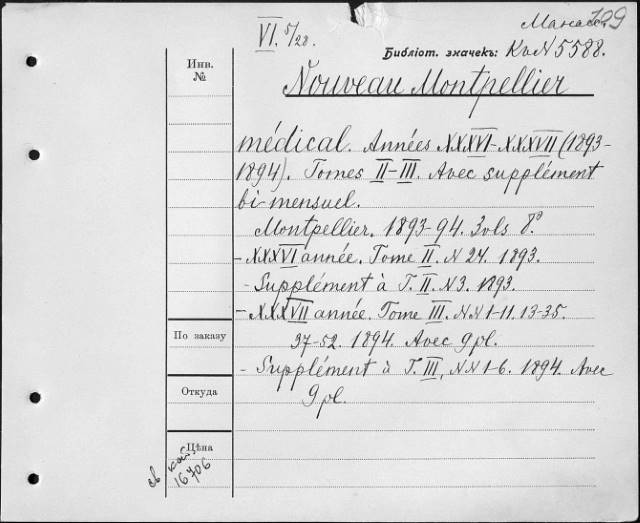 199
VI. 5/28.
Библіот. значекъ: КиN5588.
Инв.
№
Nouveau Montpellier
médical. Années XXXVI-XXXVII (1893-
1894). Tomes II-III. Avec supplément
bi-mensuel.
Montpellier. 1893-94. 3vols 8°
- XXXVI année. Tome II. N 24. 1893.
- Supplément à T. II. N3. 1893.
- XXXVII année. Tome III. NN 1-11. 13-35.
По заказу
37-52. 1894. Avec 9 pl.
- Supplément à T. III, NN 1-6. 1894. Avec
Откуда
9 pl.
Цѣна
св кат.
16706